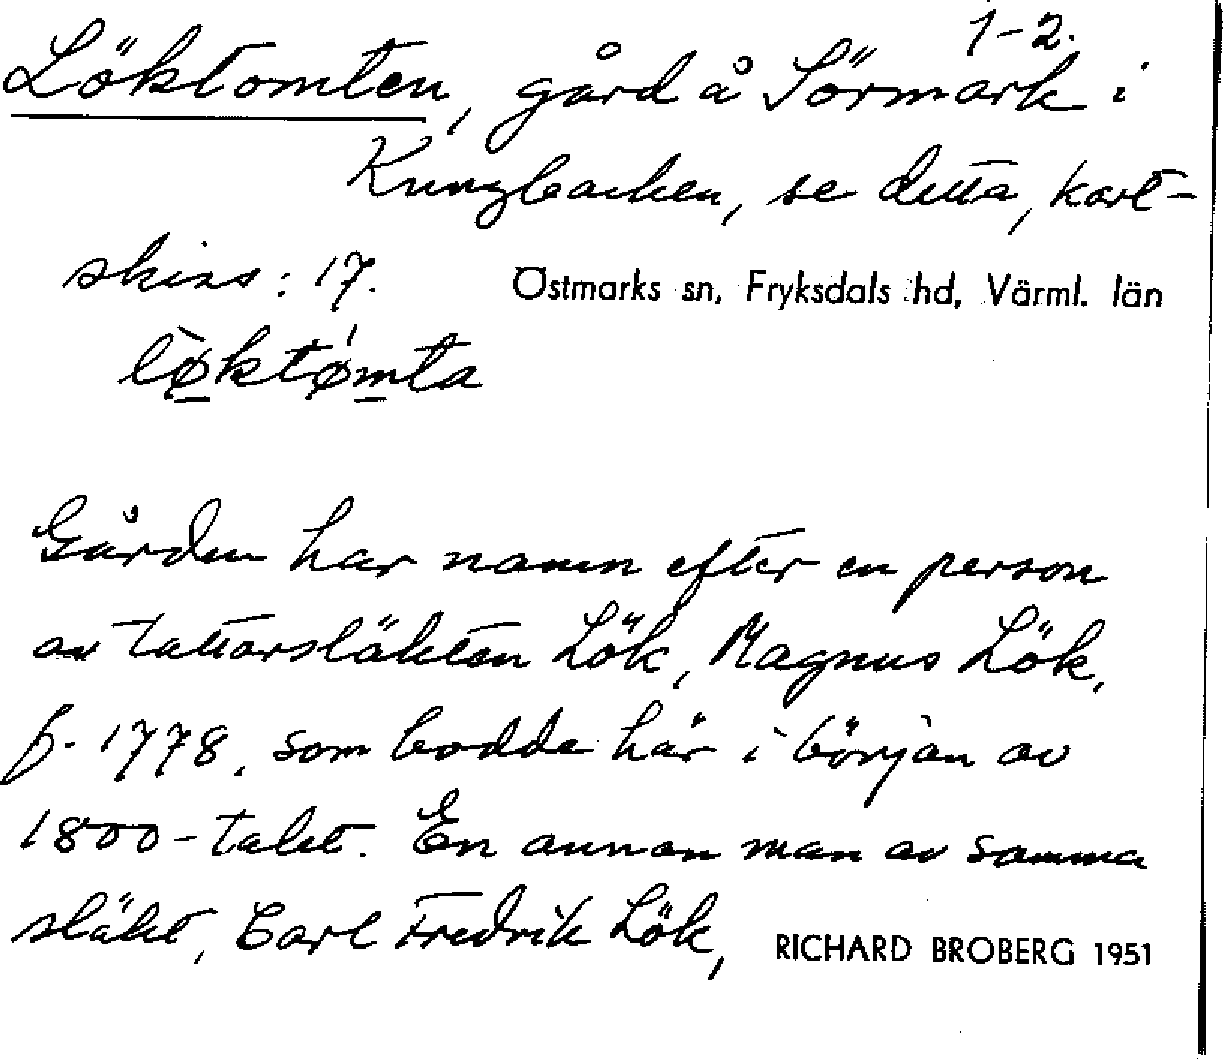 1-2.
Löktomten, gård å Sörmark i
Kungbacken, se detta, kart-
skiss: 17. Östmarks sn, Fryksdals hd, Värml. län
lø̀ktǿmta
Gården har namn efter en person
av tattarsläkten Lök, Magnus Lök,
f. 1778, som bodde här i början av
1800-talet. En annan man av samma
släkt, Carl Fredrik Lök, RICHARD BROBERG 1951